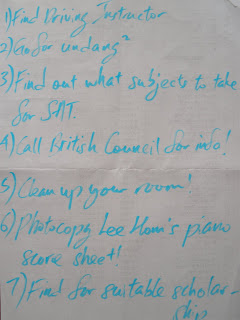 1) Find Driving Instructor
2) Go for undang²
3) Find out what subjects to take
for SAT.
4) Call British Council for info!
5) Clean up your room!
6) Photocopy Lee Hom's piano
score sheet!
7) Find for suitable scholar-
ship